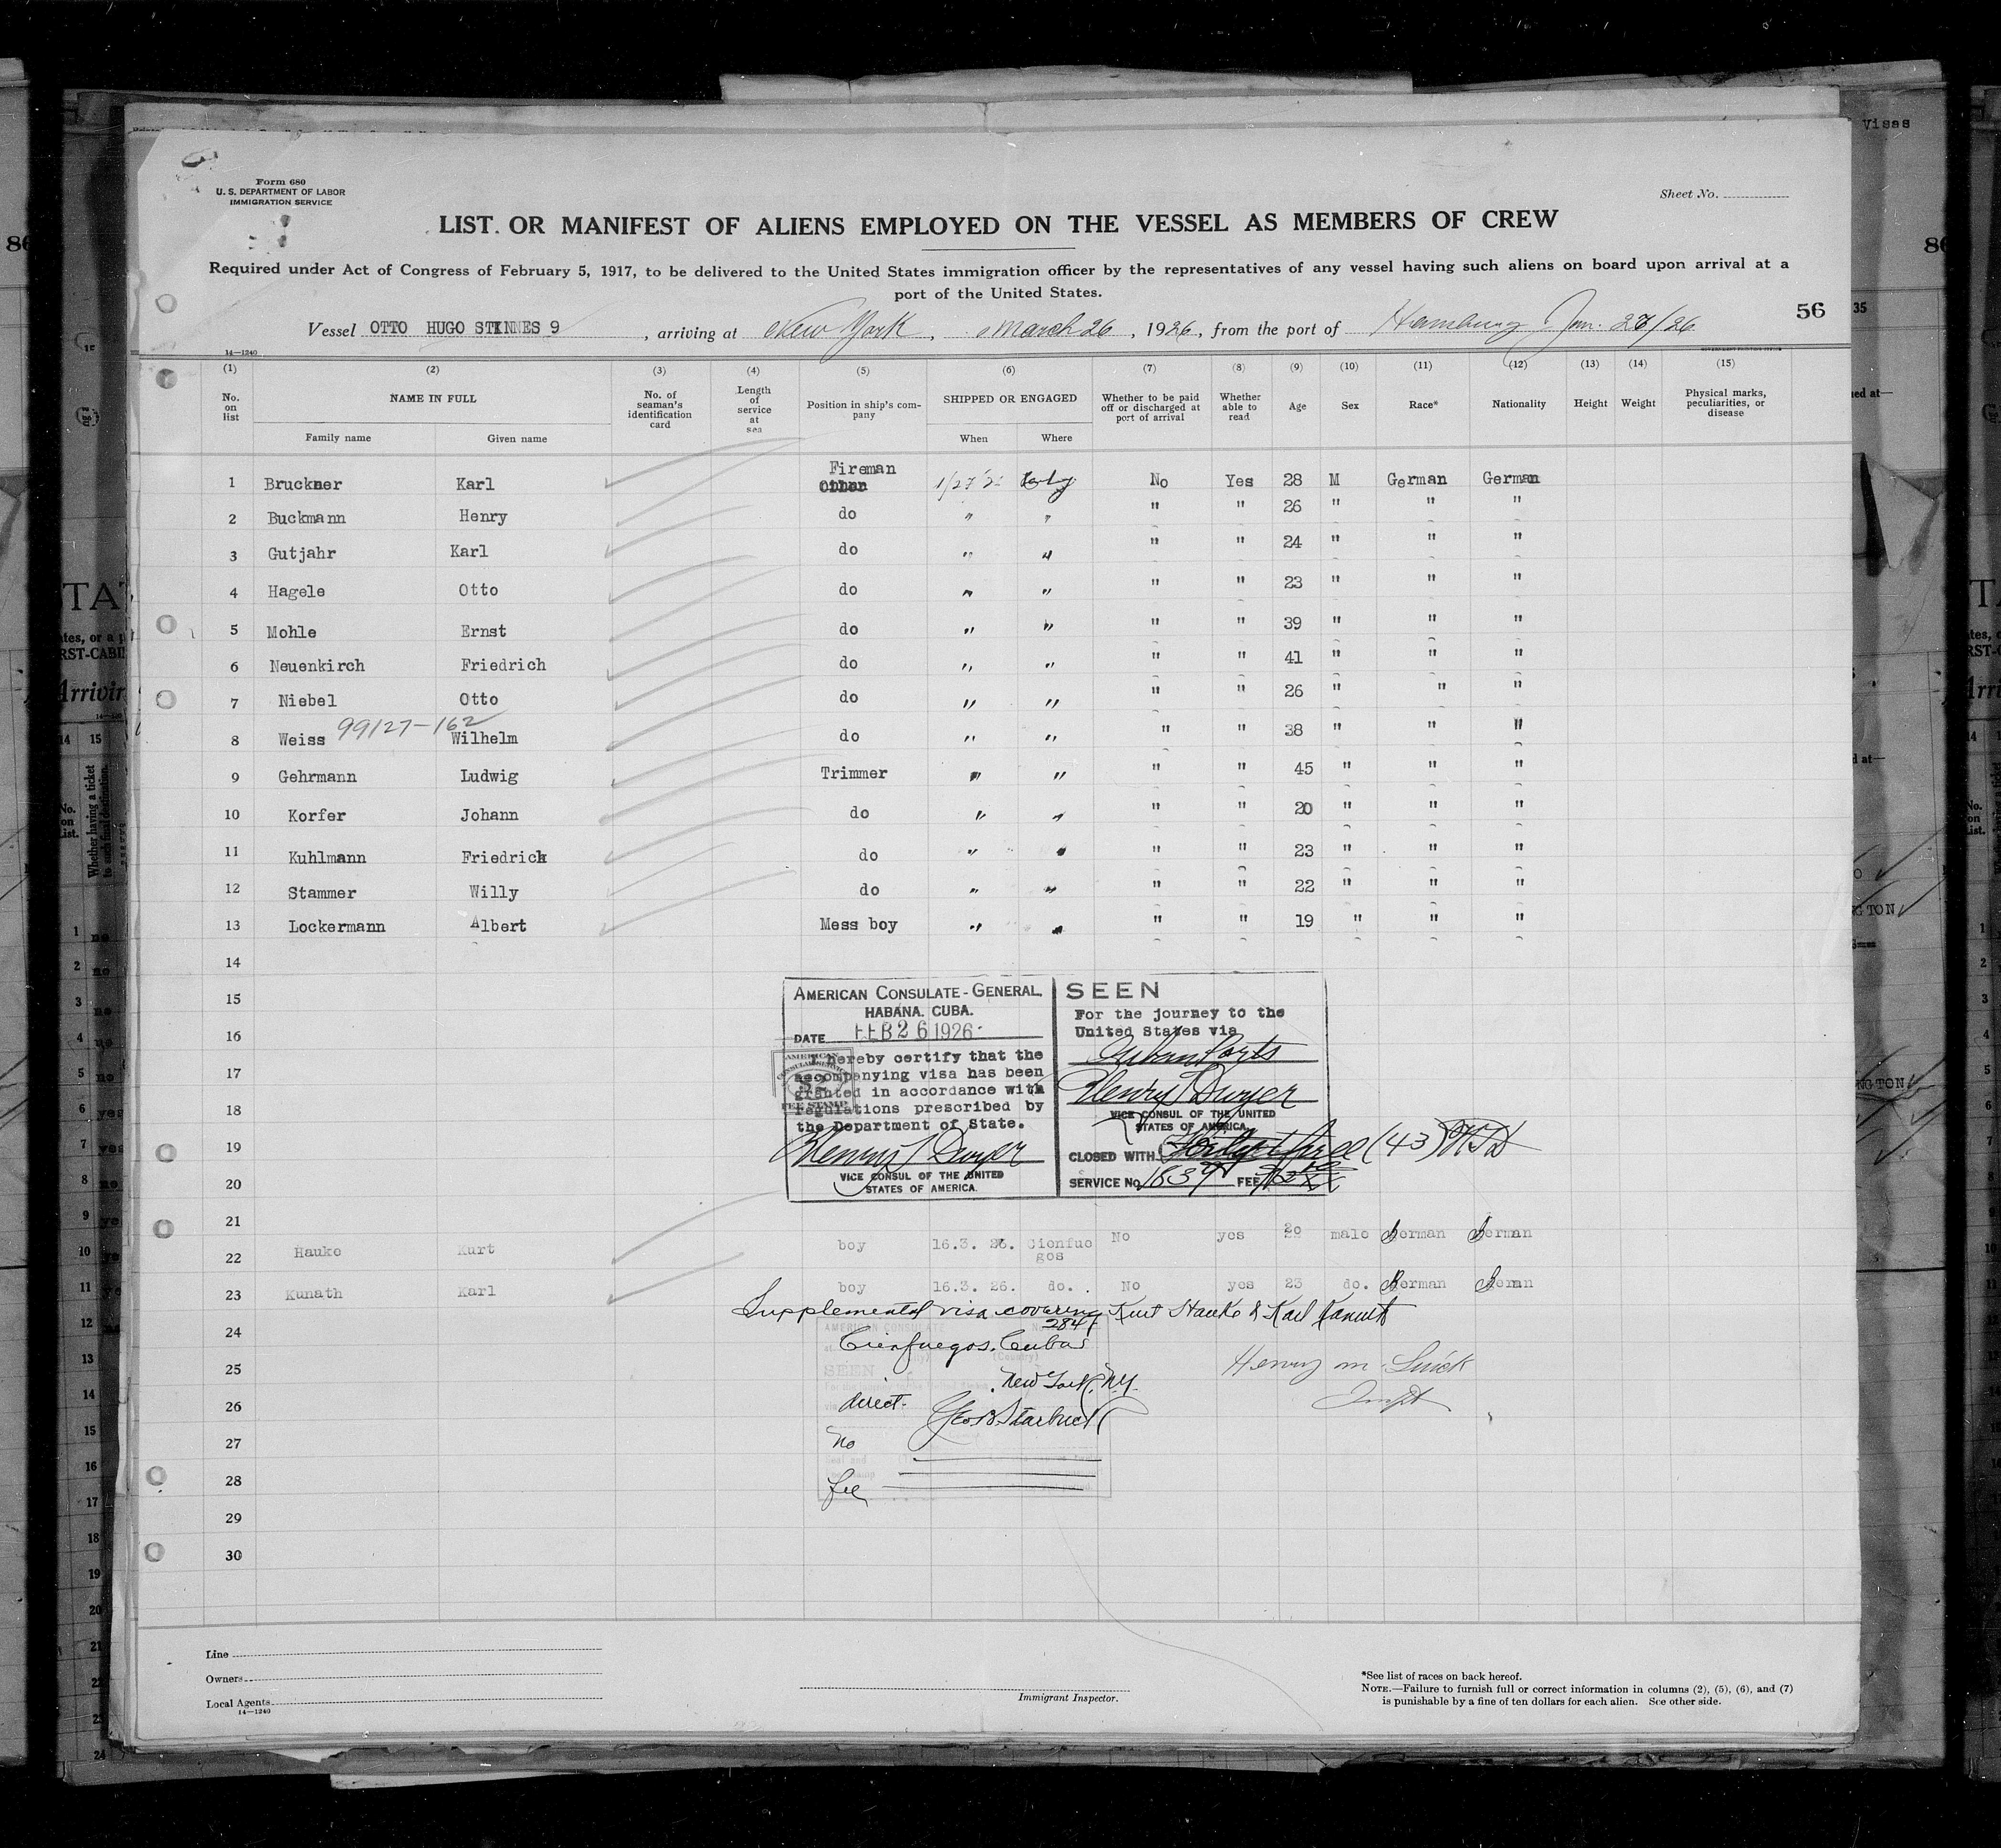 Form 680
U. S. DEPARTMENT OF LABOR
IMMIGRATION SERVICE
Sheet No.
LIST OR MANIFEST OF ALIENS EMPLOYED ON THE VESSEL AS MEMBERS OF CREW
Required under Act of Congress of February 5, 1917, to be delivered to the United States immigration officer by the representatives of any vessel having such aliens on board upon arrival at a
port of the United States.
56
Vessel OTTO HUGO STINNES 9, arriving at New York, March 26, 1926, from the port of Hamburg Jan. 27/26
14—1240
(1) (2) (3) (4) (5) (6) (7) (8) (9) (10) (11) (12) (13) (14) (15)
No. on list NAME IN FULL No. of seaman's identification card Length of service at sea Position in ship's company SHIPPED OR ENGAGED Whether to be paid off or discharged at port of arrival Whether able to read Age Sex Race* Nationality Height Weight Physical marks, peculiarities, or disease
Family name Given name When Where
1 Bruckner Karl Fireman 1/27 No Yes 28 M German German
2 Buckmann Henry do " " " " 26 " " "
3 Gutjahr Karl do " " " " 24 " " "
4 Hagele Otto do " " " " 23 " " "
5 Mohle Ernst do " " " " 39 " " "
6 Neuenkirch Friedrich do " " " " 41 " " "
7 Niebel Otto do " " " " 26 " " "
99127-162
8 Weiss Wilhelm do " " " " 38 " " "
9 Gehrmann Ludwig Trimmer " " " " 45 " " "
10 Korfer Johann do " " " " 20 " " "
11 Kuhlmann Friedrich do " " " " 23 " " "
12 Stammer Willy do " " " " 22 " " "
13 Lockermann Albert Mess boy " " " " 19 " " "
14
15
16
17
18
19
20
21
AMERICAN CONSULATE-GENERAL,
HABANA, CUBA.
DATE FEB 26 1926
I hereby certify that the
accompanying visa has been
granted in accordance with
regulations prescribed by
the Department of State.
Henry T Dwyer
VICE CONSUL OF THE UNITED
STATES OF AMERICA.
AMERICAN
CONSULAR SERVICE
FEE STAMP
SEEN
For the journey to the
United States via
Cuban Ports
Henry T Dwyer
VICE CONSUL OF THE UNITED
STATES OF AMERICA.
CLOSED WITH (43) HTD
SERVICE No. 1839 FEE
22 Hauke Kurt boy 16.3. 26. Cienfuegos No yes 20 male German German
23 Kunath Karl boy 16.3. 26. do. No yes 23 do. German German
Supplemental visa covering Kurt Hauke & Karl Kanuth
24
AMERICAN CONSULATE No. 2847
Cienfuegos, Cuba
25
SEEN
New York, N.Y.
Henry M.
26
direct.
Geo B. Starbuck
27
No
28
fee
29
30
Line
Owners
Local Agents
14—1240
Immigrant Inspector.
*See list of races on back hereof.
NOTE.—Failure to furnish full or correct information in columns (2), (5), (6), and (7)
is punishable by a fine of ten dollars for each alien. See other side.
Visas